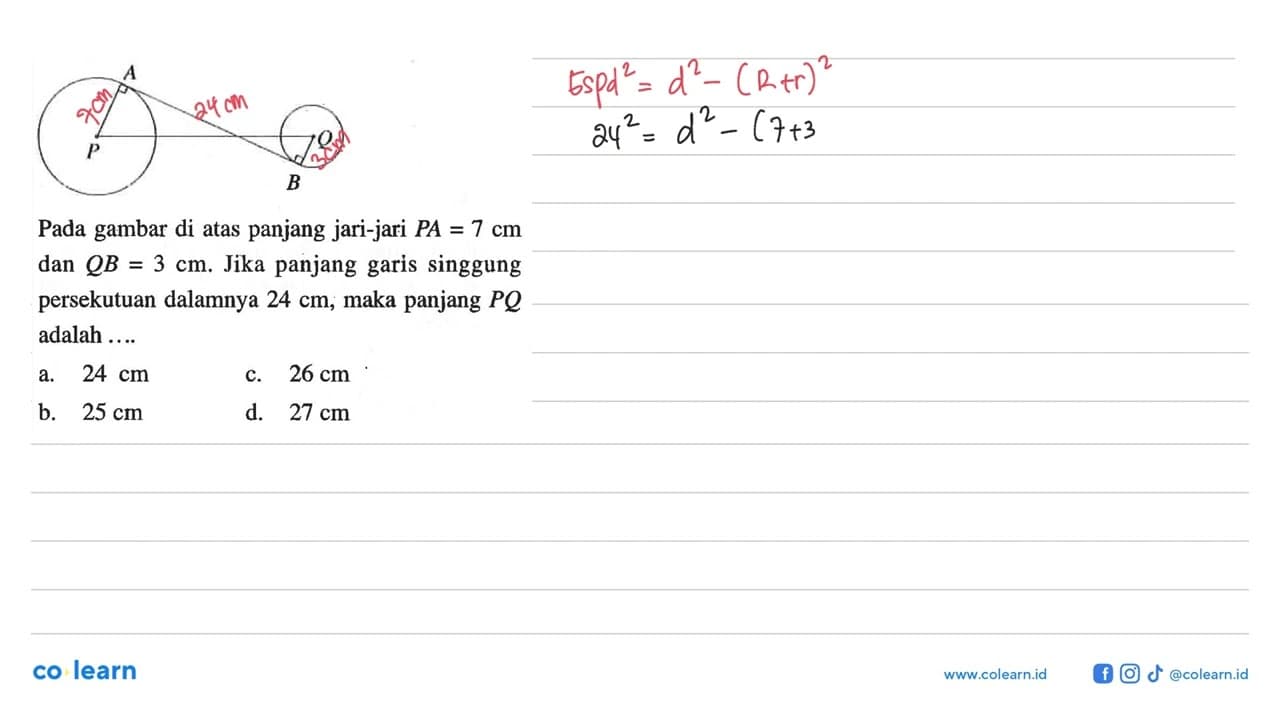 A
7cm
24 cm
P
Q
3cm
B
Gspd² = d² - (R+r)²
24² = d² - (7+3
Pada gambar di atas panjang jari-jari PA = 7 cm
dan QB = 3 cm. Jika panjang garis singgung
persekutuan dalamnya 24 cm, maka panjang PQ
adalah ....
a. 24 cm c. 26 cm
b. 25 cm d. 27 cm
co learn
www.colearn.id @colearn.id